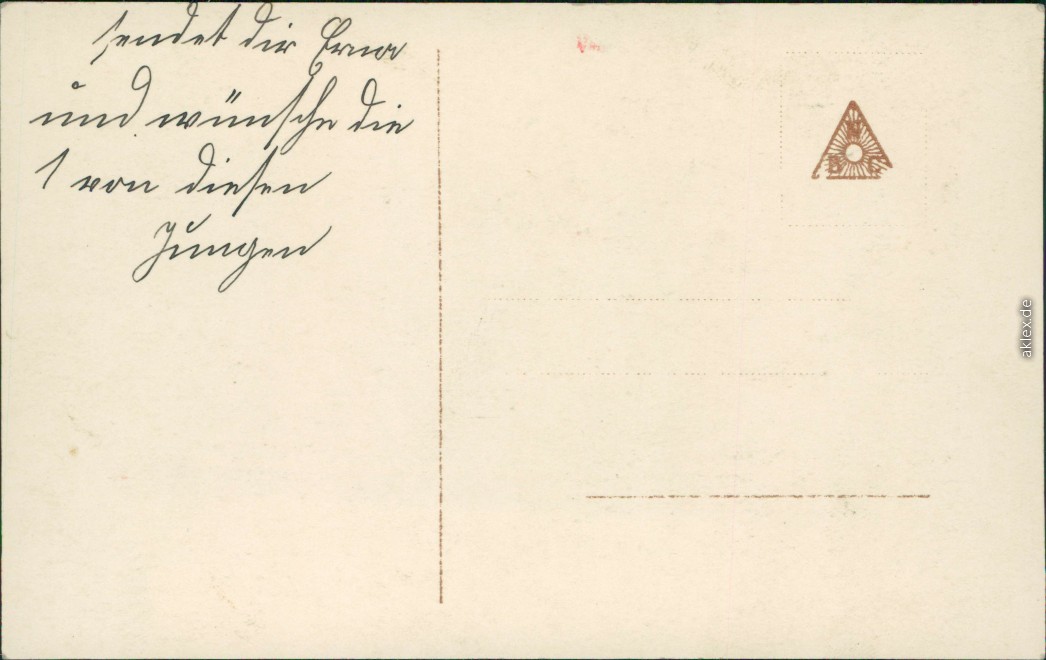 sendet dir Erna
und wünsche die
1 von diesen
Jungen
N
B G
aklex.de